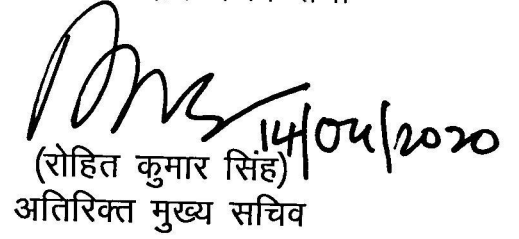 14/04/2020
(रोहित कुमार सिंह)
अतिरिक्त मुख्य सचिव